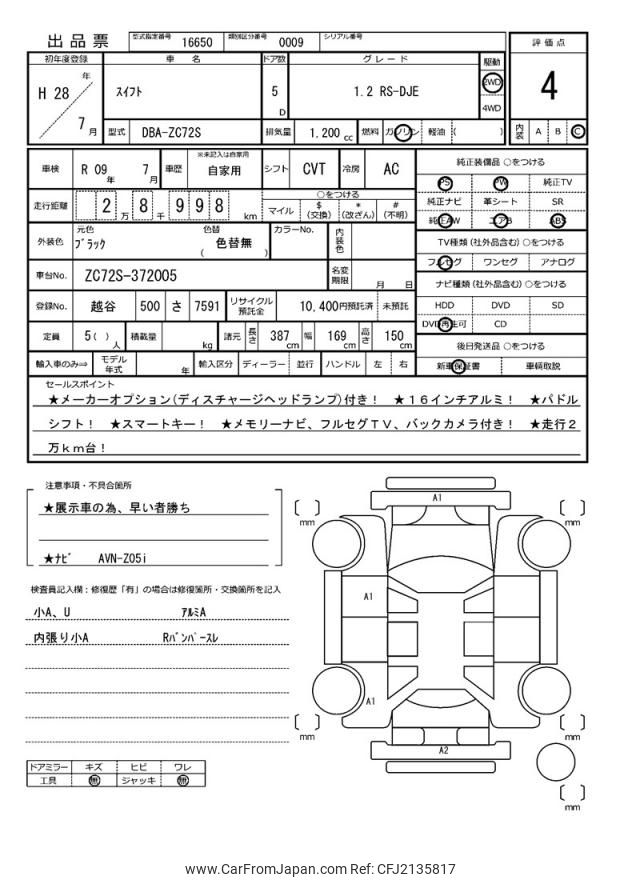 出品票 型式指定番号 16650 類別区分番号 0009 シリアル番号
初年度登録 車名 ドア数 グレード 駆動 評価点
H 28 年 7 月 スイフト 5 D 1.2 RS-DJE 2WD 4WD 4
型式 DBA-ZC72S 排気量 1,200 cc 燃料 ガソリン 軽油 ( ) 内装 A B C
車検 R 09 年 7 月 車歴 ※未記入は自家用 自家用 シフト CVT 冷房 AC
純正装備品 ○をつける
PS PW 純正TV
純正ナビ 革シート SR
純正AW エアB ABS
走行距離 2 万 8 千 998 km ○をつける マイル $(交換) *(改ざん) #(不明)
外装色 元色 ブラック 色替 色替無 ( ) カラーNo. 内装色
TV種類(社外品含む) ○をつける
フルセグ ワンセグ アナログ
車台No. ZC72S-372005 名変期限 月 日
ナビ種類(社外品含む) ○をつける
HDD DVD SD
DVD再生可 CD
登録No. 越谷 500 さ 7591 リサイクル預託金 10,400円預託済 未預託
定員 5( )人 積載量 kg 諸元 長さ 387 cm 幅 169 cm 高さ 150 cm
後日発送品 ○をつける
新車保証書 車輌取説
輸入車のみ⇒ モデル年式 年 輸入区分 ディーラー 並行 ハンドル 左 右
セールスポイント
★メーカーオプション(ディスチャージヘッドランプ)付き! ★16インチアルミ! ★パドル
シフト! ★スマートキー! ★メモリーナビ、フルセグTV、バックカメラ付き! ★走行2
万km台!
注意事項・不具合箇所
★展示車の為、早い者勝ち
★ナビ AVN-Z05i
検査員記入欄:修復歴「有」の場合は修復箇所・交換箇所を記入
小A、U アルミA
内張り小A Rバンパースレ
ドアミラー キズ ヒビ ワレ
工具 無 ジャッキ 無
A1
mm mm
A1
A1
mm mm
A2
mm
www.CarFromJapan.com Ref: CFJ2135817